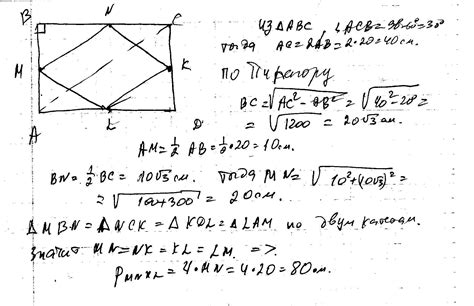 B N C
M K
A L D
Из △ABC, ∠ACB = 90-60° = 30°
тогда AC = 2AB = 2·20 = 40 см.
по Пифагору
BC = √AC² - AB² = √40² - 20² =
= √1200 = 20√3 см.
AM = 1/2 AB = 1/2·20 = 10 см.
BN = 1/2 BC = 10√3 см. Тогда MN = √10² + (10√3)² =
= √100+300 = 20 см.
△MBN = △NCK = △KDL = △LAM по двум катетам.
Значит MN = NK = KL = LM =>.
P MNKL = 4·MN = 4·20 = 80 см.